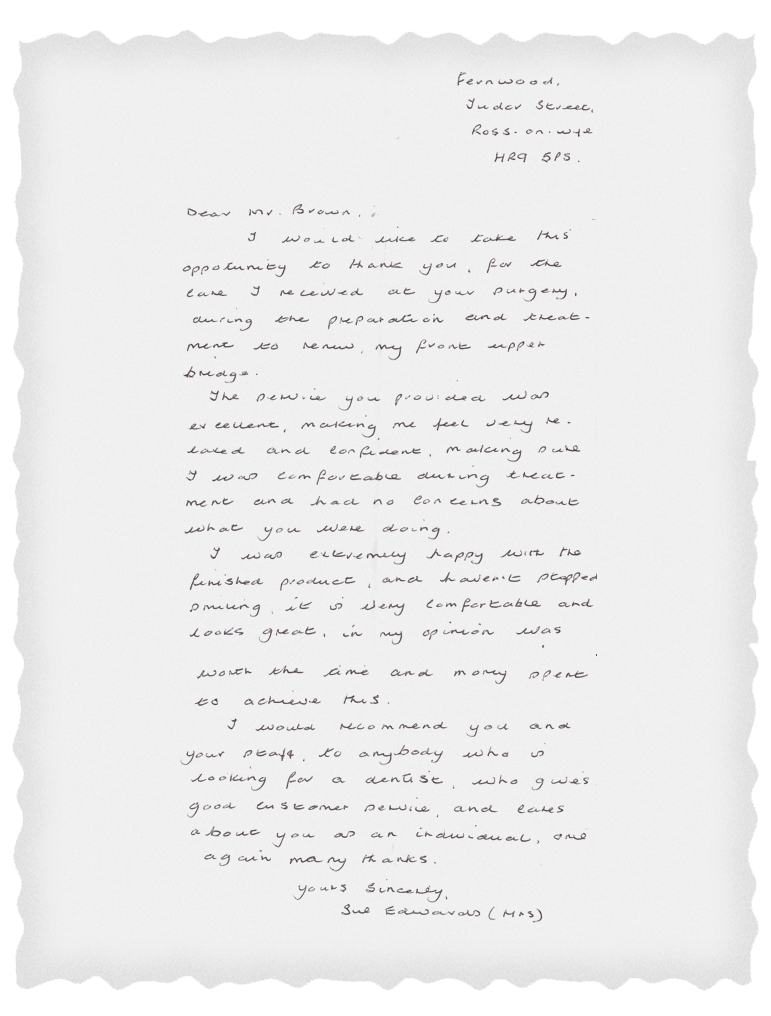 Fernwood,
Tudor Street,
Ross-on-wye
HR9 5PS.
Dear Mr. Brown,
I would like to take this
oppotunity to thank you, for the
care I received at your surgery,
during the preparation and treat-
ment to renew, my front upper
bridge.
The service you provided was
excellent, making me feel very re-
laxed and confident, making sure
I was comfortable during treat-
ment and had no concerns about
what you were doing.
I was extremely happy with the
finished product, and haven't stopped
smiling, it is very comfortable and
looks great, in my opinion was
worth the time and money spent
to achieve this.
I would recommend you and
your staff, to anybody who is
looking for a dentist, who gives
good customer service, and cares
about you as an individual, one
again many thanks.
yours Sincerely,
Sue Edwards (Mrs)